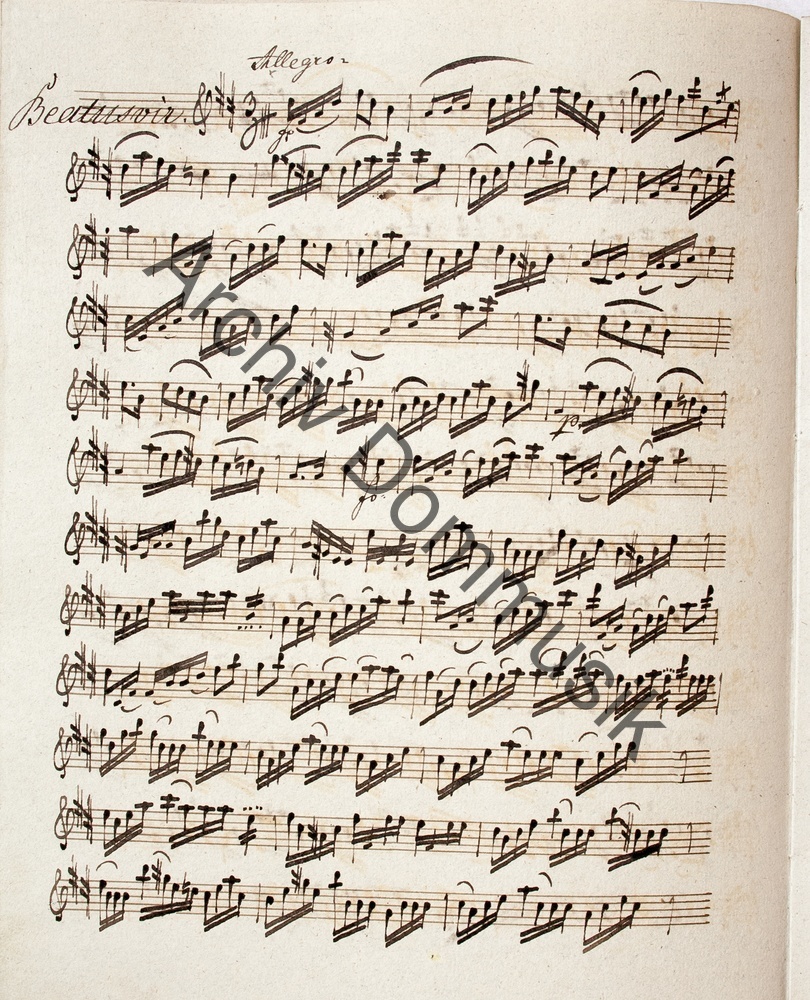 Allegro
Beatus vir.
3/4
fo
p.
fo
Archiv Dommusik